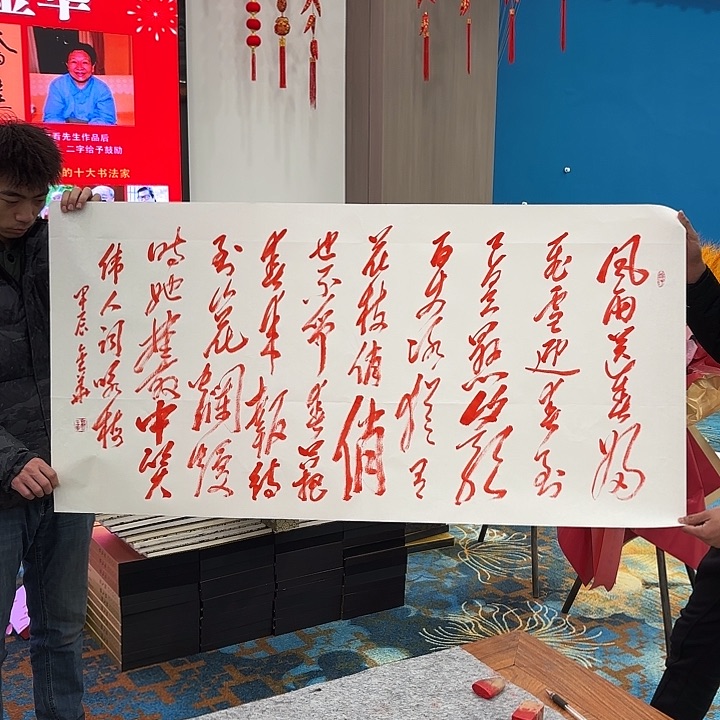 金华
看先生作品后
二字给予鼓励
的十大书法家
风雨送春归
飞雪迎春到
已是悬崖
百丈冰犹有
花枝俏俏
也不争春只把
春来報待
到山花爛漫
时她在丛中笑
伟人词咏梅
甲辰金华